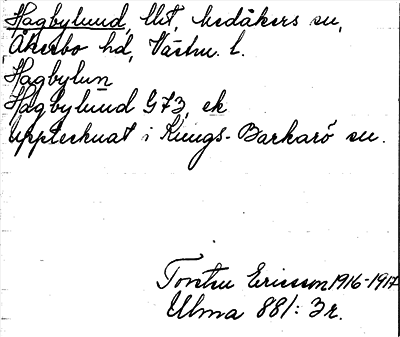 Hagbylund, lht, Medåkers sn,
Åkerbo hd, Västm. l.
Hagbylun
Hagbylund G73, ek
upptecknat i Kungs-Barkarö sn.
Torsten Ericsson 1916-1917
Ulma 881: 3 r.